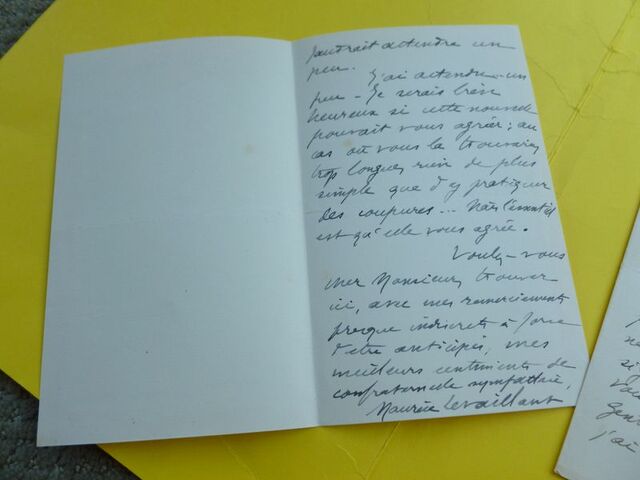 faudrait attendre un
peu.
J'ai attendu un
peu - Je serais bien
heureux si cette nouvelle
pouvait vous agréer ; au
cas où vous la trouveriez
trop longue, rien de plus
simple que d'y pratiquer
des coupures... Mais l'essentiel
est qu'elle vous agrée.
Voulez-vous
cher Monsieur, trouver
ici, avec mes remerciements
presque indiscrets à force
d'être anticipés, mes
meilleurs sentiments de
confraternelle sympathie,
Maurice Levaillant
si
J'ai